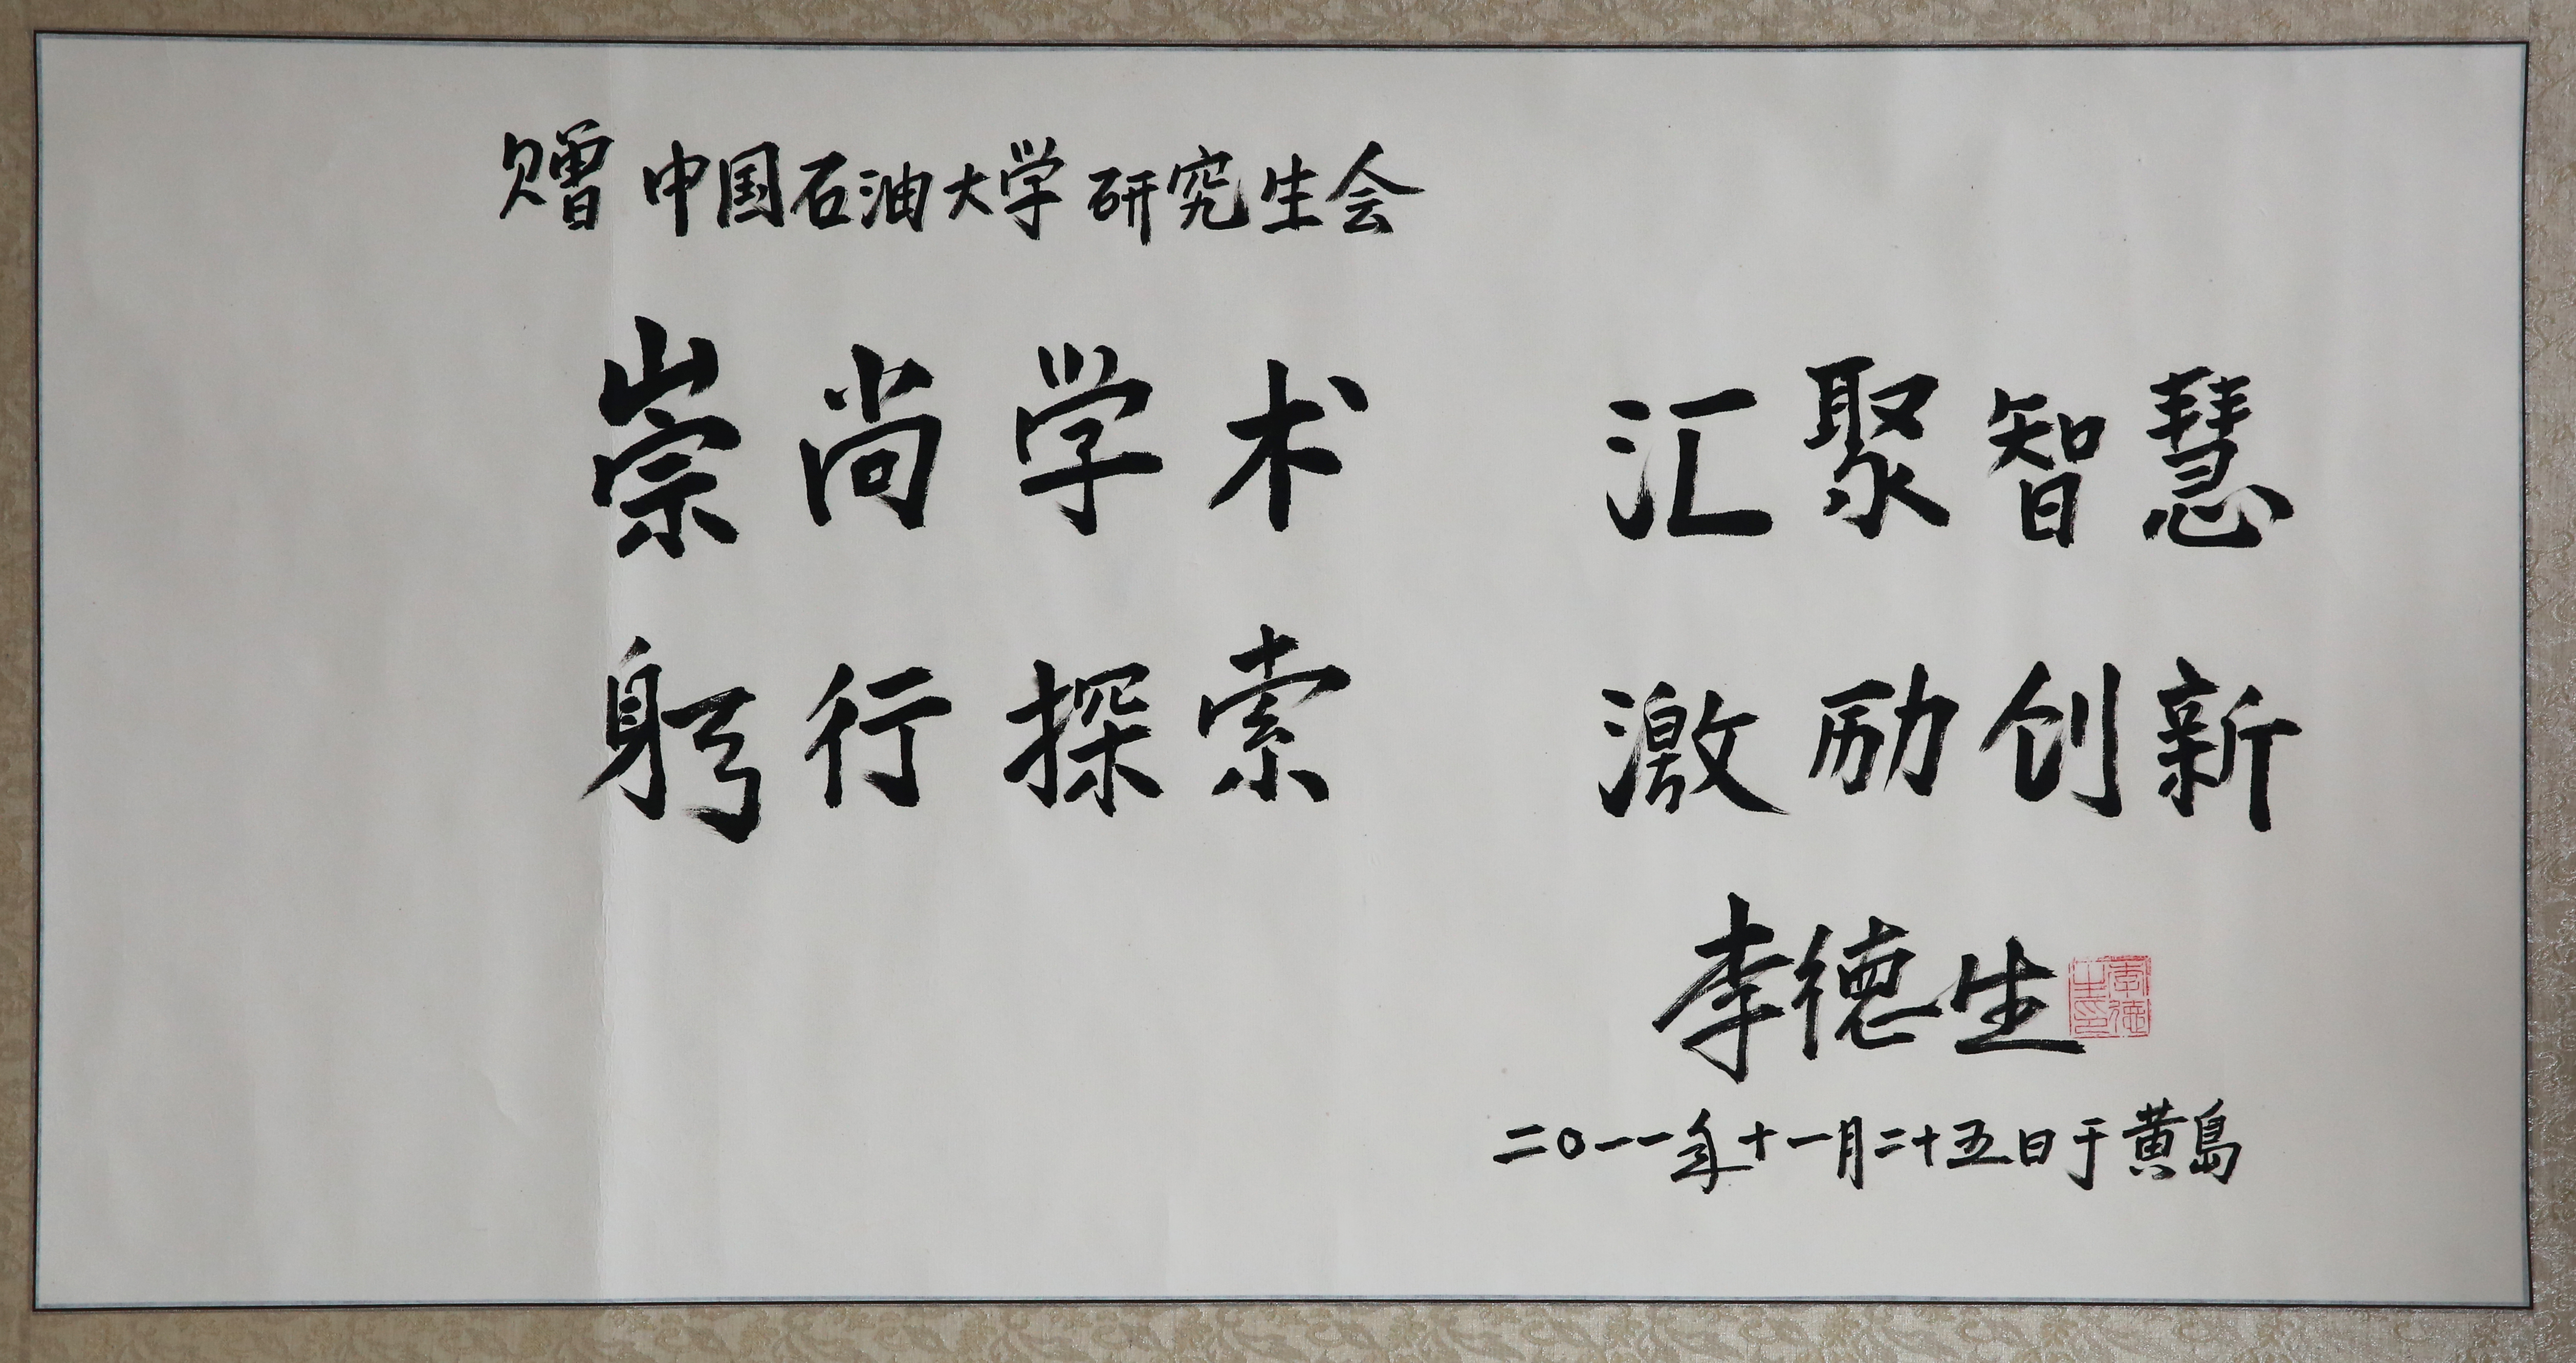 赠 中国石油大学 研究生会
崇尚学术 汇聚智慧
躬行探索 激励创新
李德生
李德生印
二〇一一年十一月二十五日于黄岛